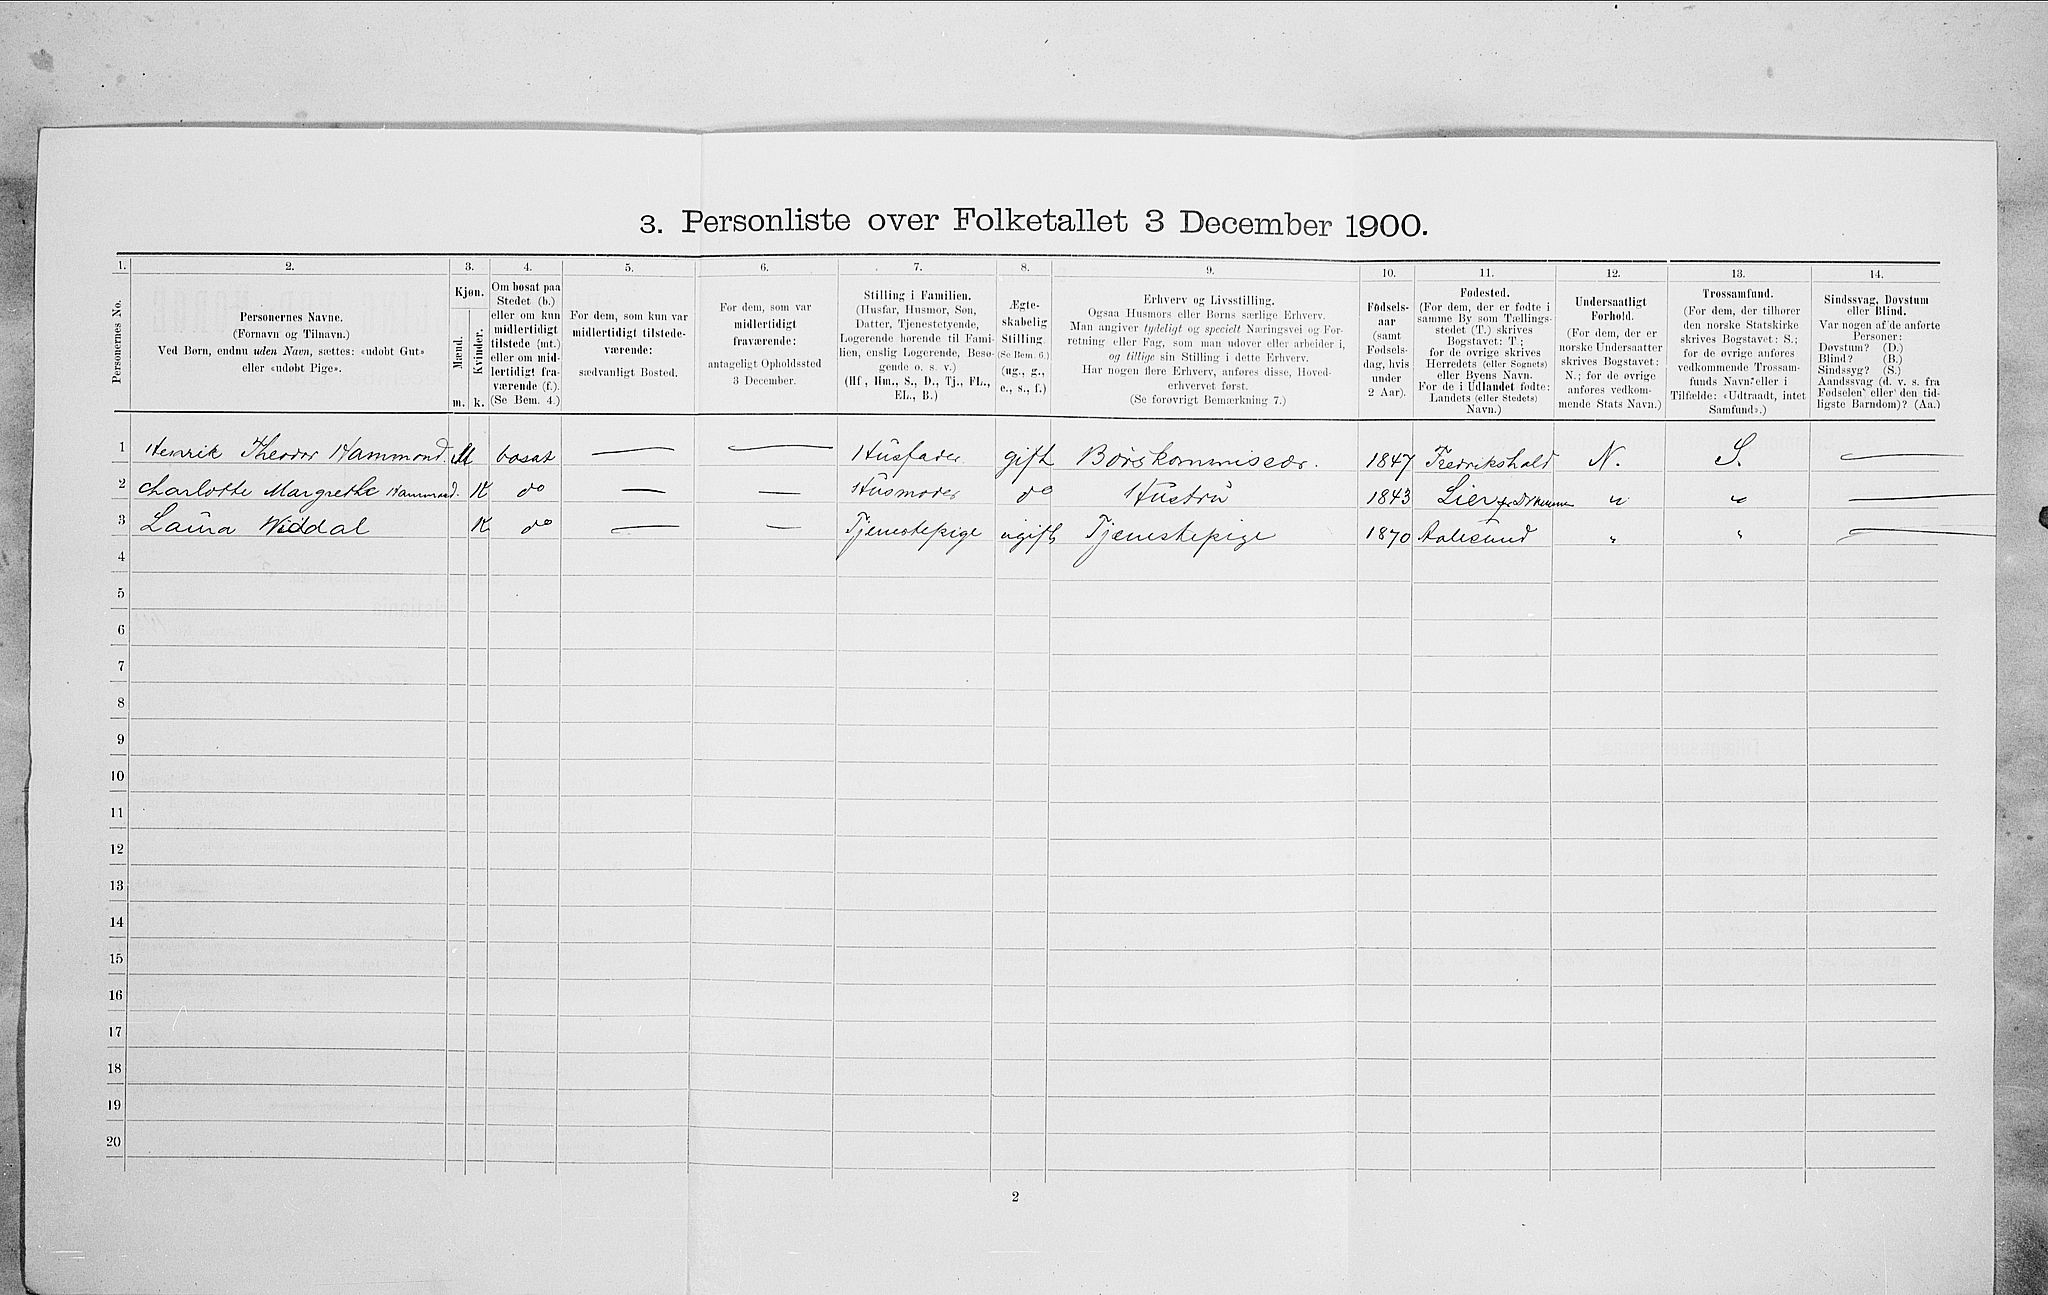 3. Personliste over Folketallet 3 December 1900.
1. 2. 3. 4. 5. 6. 7. 8. 9. 10. 11. 12. 13. 14.
Personernes No.
Personernes Navne.
(Fornavn og Tilnavn.)
Ved Børn, endnu uden Navn, sættes: «udøbt Gut»
eller «udøbt Pige».
Kjøn.
Mænd.
Kvinder.
m. k.
Om bosat paa
Stedet (b.)
eller om kun
midlertidigt
tilstede (mt.)
eller om mid-
lertidigt fra-
værende (f.).
(Se Bem. 4.)
For dem, som kun var
midlertidigt tilstede-
værende:
sædvanligt Bosted.
For dem, som var
midlertidigt
fraværende:
antageligt Opholdssted
3 December.
Stilling i Familien.
(Husfar, Husmor, Søn,
Datter, Tjenestetyende,
Logerende hørende til Fami-
lien, enslig Logerende, Besø-
gende o. s. v.)
(Hf, Hm., S., D., Tj., FL.,
EL., B.)
Ægte-
skabelig
Stilling.
(Se Bem. 6.)
(ug., g.,
e., s., f.)
Erhverv og Livsstilling.
Ogsaa Husmors eller Børns særlige Erhverv.
Man angiver tydeligt og specielt Næringsvei og For-
retning eller Fag, som man udøver eller arbeider i,
og tillige sin Stilling i dette Erhverv.
Har nogen flere Erhverv, anføres disse, Hoved-
erhvervet først.
(Se forøvrigt Bemærkning 7.)
Fødsels-
aar
(samt
Fødsels-
dag, hvis
under
2 Aar).
Fødested.
(For dem, der er fødte i
samme By som Tællings-
stedet (T.) skrives
Bogstavet: T;
for de øvrige skrives
Herredets (eller Sognets)
eller Byens Navn.
For de i Udlandet fødte:
Landets (eller Stedets)
Navn.)
Undersaatligt
Forhold.
(For dem, der er
norske Undersaatter
skrives Bogstavet:
N.; for de øvrige
anføres vedkom-
mende Stats Navn.)
Trossamfund.
(For dem, der tilhører
den norske Statskirke
skrives Bogstavet: S.;
for de øvrige anføres
vedkommende Trossam-
funds Navn eller i
Tilfælde: «Udtraadt, intet
Samfund».)
Sindssvag, Døvstum
eller Blind.
Var nogen af de anførte
Personer:
Døvstum? (D.)
Blind? (B.)
Sindssyg? (S.)
Aandssvag (d. v. s. fra
Fødselen eller den tid-
ligste Barndom)? (Aa.)
1 Henrik Theodor Hammond. M bosat — — Husfader gift Børskommisær. 1847 Fredrikshald N. S. —
2 Charlotte Margrethe Hammond. K do — — Husmoder do Hustru 1843 Lier " " —
3 Laura Widdal K do — — Tjenestepige ugift Tjenestepige 1870 Aalesund " " —
4
5
6
7
8
9
10
11
12
13
14
15
16
17
18
19
20
2